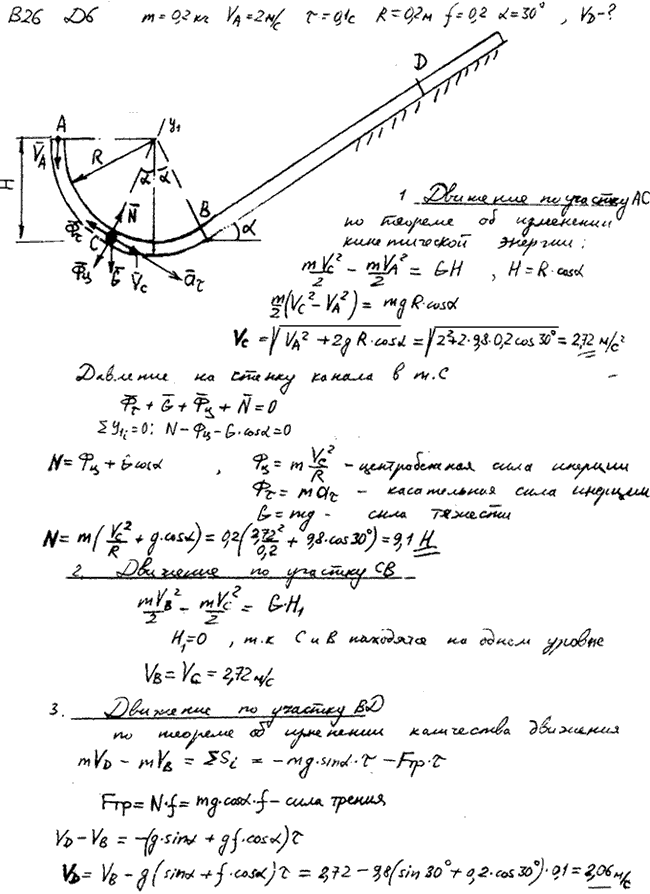 В26 D6 m=0,2 кг V_A=2 м/с τ=0,1с R=0,2м f=0,2 α=30°, V_D-?
A
y₁
D
V̄_A
R
H
α α
N̄
B
α
Φ̄_τ
C
Φ̄_ц
Ḡ
V̄_C
ā_τ
1 Движение по участку AC
по теореме об изменении
кинетической энергии:
mV_C²/2 - mV_A²/2 = GH , H=R·cosα
m/2(V_C²-V_A²) = mgR·cosα
V_C = √(V_A²+2gR·cosα) = √(2²+2·9,8·0,2cos30°) = 2,72 м/с²
Давление на стенку канала в т.С
Φ̄_τ + Ḡ + Φ̄_ц + N̄ = 0
Σy₁ᵢ=0: N-Φ_ц-G·cosα=0
N=Φ_ц+Gcosα , Φ_ц = m V_C²/R - центробежная сила инерции
Φ_τ = ma_τ - касательная сила инерции
G=mg - сила тяжести
N= m(V_C²/R + g·cosα) = 0,2(2,72²/0,2 + 9,8·cos30°) = 9,1 Н
2. Движение по участку СВ
mV_B²/2 - mV_C²/2 = GH₁
H₁=0 , т.к С и В находятся на одном уровне
V_B = V_C = 2,72 м/с
3. Движение по участку BD
по теореме об изменении количества движения
mV_D - mV_B = ΣSᵢ = -mg·sinα·τ - Fтр·τ
Fтр=N·f=mg·cosα·f - сила трения
V_D-V_B = -(g·sinα+gf·cosα)τ
V_D= V_B-g(sinα+f·cosα)τ = 2,72-9,8(sin30°+0,2·cos30°)·0,1=2,06 м/с